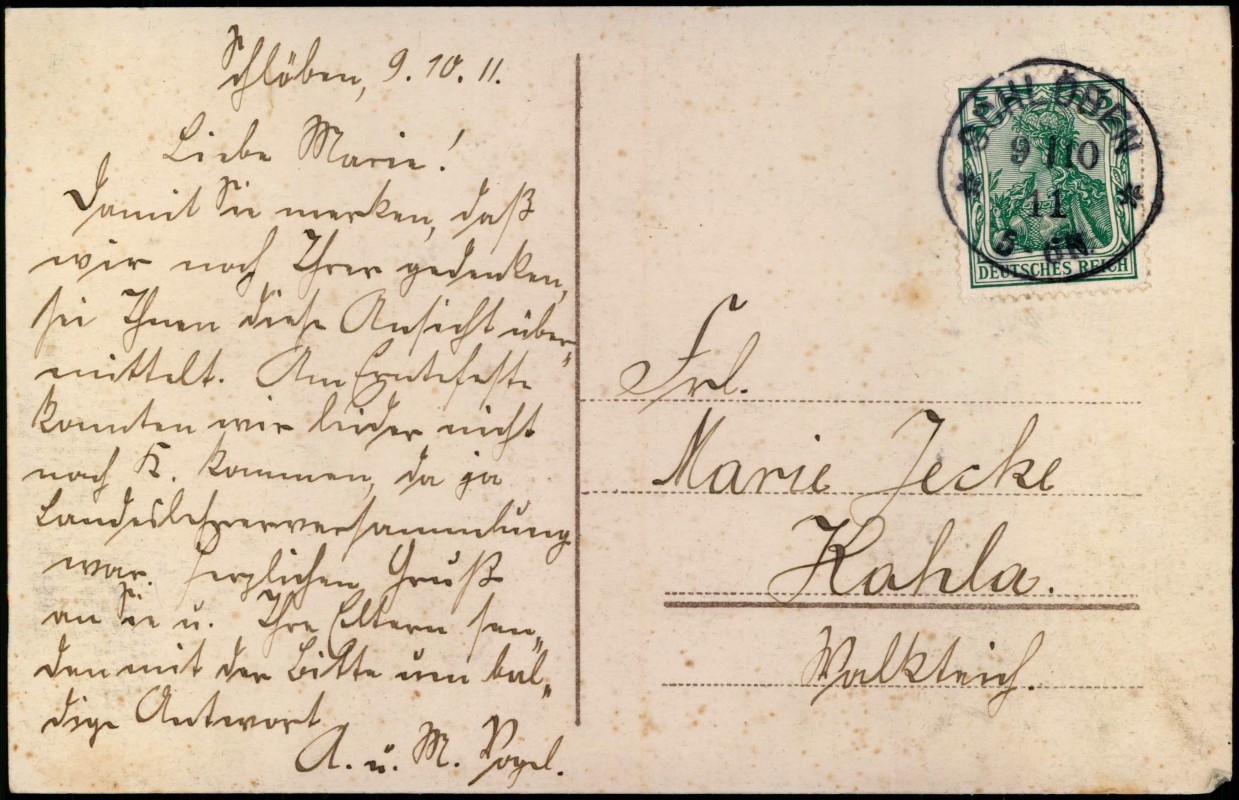 Schlöben, 9. 10. 11.
Liebe Marie!
Damit Sie merken, daß
wir noch Ihrer gedenken,
sei Ihnen diese Ansicht über-
mittelt. Am Erntefeste
konnten wir leider nicht
nach K. kommen, da ja
Landeslehrerversammlung
war. Herzlichen Gruß
an Sie u. Ihre Eltern sen-
den mit der Bitte um bal-
dige Antwort
A. u. M. Vogel.
SCHLÖBEN
9/10
11
5 6N.
5 5
DEUTSCHES REICH
Frl.
Marie Jecke
Kahla.
Walkteich.